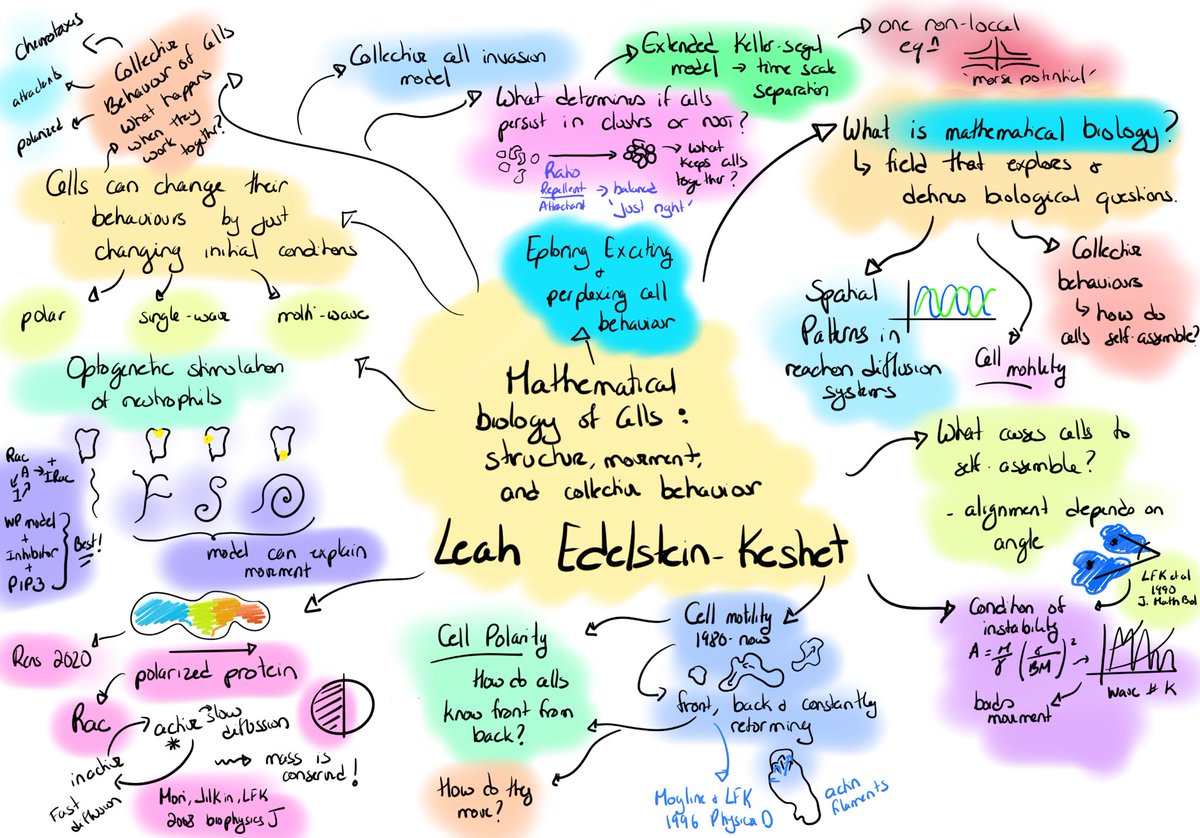 Mathematical
biology of Cells :
structure, movement,
and collective behaviour
Leah Edelstein-Keshet
Eploring Exciting
+
perplexing cell
behaviour
What is mathematical biology?
↳ field that explores &
defines biological questions.
Spatial
Patterns in
reaction diffusion
systems
Cell
motility
Collective
behaviours
↳ how do
cells self-assemble?
What causes cells to
self-assemble?
- alignment depends on
angle
LFK et al
1990
J. Math Biol
Condition of
instability
wave # K
movement
Cell motility
1980-now
front, back & constantly
reforming
LFK
1996 Physica D
actin
filaments
Cell Polarity
How do cells
know front from
back?
How do they
move?
polarized protein
2020
Rac
active
*
slow
diffusion
inactive
Fast
diffusion
mass is
conserved!
Mori, Jilkin, LFK
2008 biophysics J
Optogenetic stimulation
of neutrophils
Rac
WP model
+
Inhibitor
+
PIP3
Best!
model can explain
movement
Cells can change their
behaviours by just
changing initial conditions
polar
single-wave
multi-wave
Collective
Behaviour of Cells
What happens
when they
work together?
chemotaxis
attractants
polarized
Collective cell invasion
model
What determines if cells
persist in clusters or not?
What
keeps cells
together?
Ratio
Repellent
Attractant
→ balanced
'just right'
Extended Keller-segel
model → time scale
separation
one non-local
eqⁿ
'morse potential'